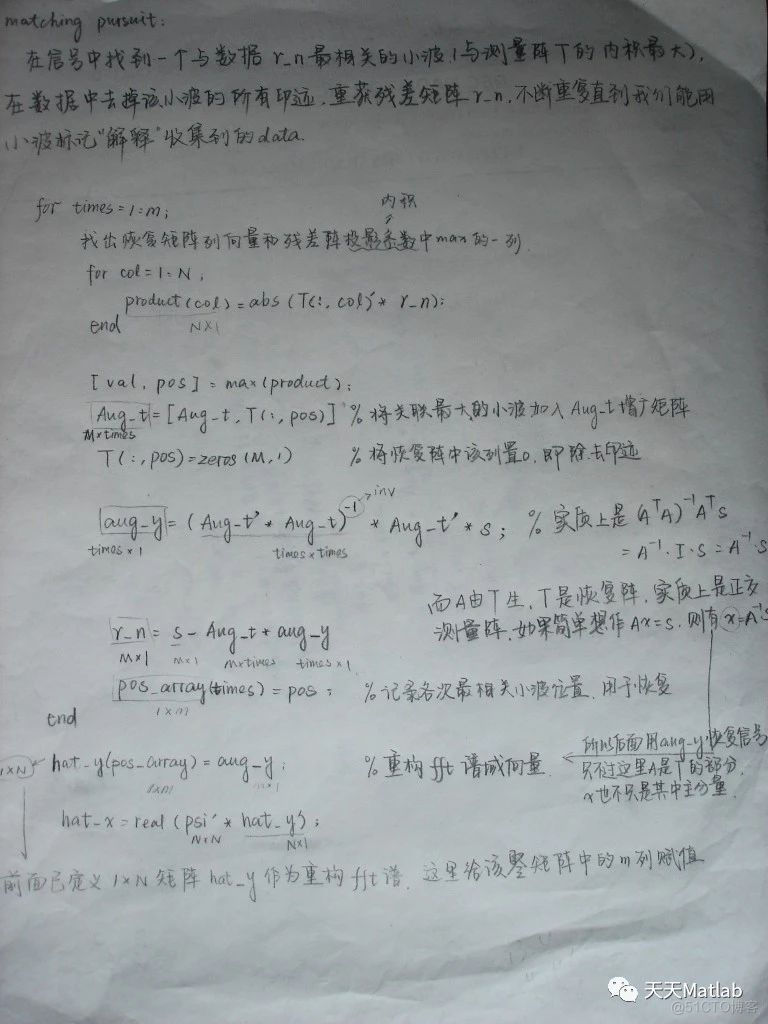 matching pursuit:
在信号中找到一个与数据 r_n 最相关的小波(与测量阵T的内积最大),
在数据中去掉该小波的所有印迹,重获残差矩阵 r_n,不断重复直到我们能用
小波标记"解释"收集到的data.
for times=1:m;
内积
找出恢复矩阵列向量和残差阵投影系数中max的一列.
for col=1:N,
product(col)=abs(T(:,col)'* r_n);
end N×1
[val, pos] = max(product);
Aug_t=[Aug_t, T(:,pos)] % 将关联最大的小波加入Aug_t增广矩阵
M×times
T(:,pos)=zeros(M,1) % 将恢复阵中该列置0,即除去印迹
→inv
aug_y=(Aug_t'* Aug_t)^-1 * Aug_t'* s; % 实质上是(AᵀA)⁻¹Aᵀs
times×1 times×times = A⁻¹·I·s = A⁻¹·s
而A由T生,T是恢复阵,实质上是正交
r_n = s - Aug_t * aug_y 测量阵,如果简单想作Ax=s,则有x=A⁻¹s
M×1 M×1 M×times times×1
pos_array(times)=pos; % 记录各次最相关小波位置,用于恢复
1×m
end
所以后面用aug_y恢复信号
1×N hat_y(pos_array)=aug_y; % 重构fft谱域向量 只不过这里A是T的部分,
1×m m×1 x也不只是其中主分量.
hat_x=real(psi'* hat_y);
N×N N×1
前面已定义1×N矩阵hat_y作为重构fft谱.这里给该零矩阵中的m列赋值
天天Matlab
@51CTO博客